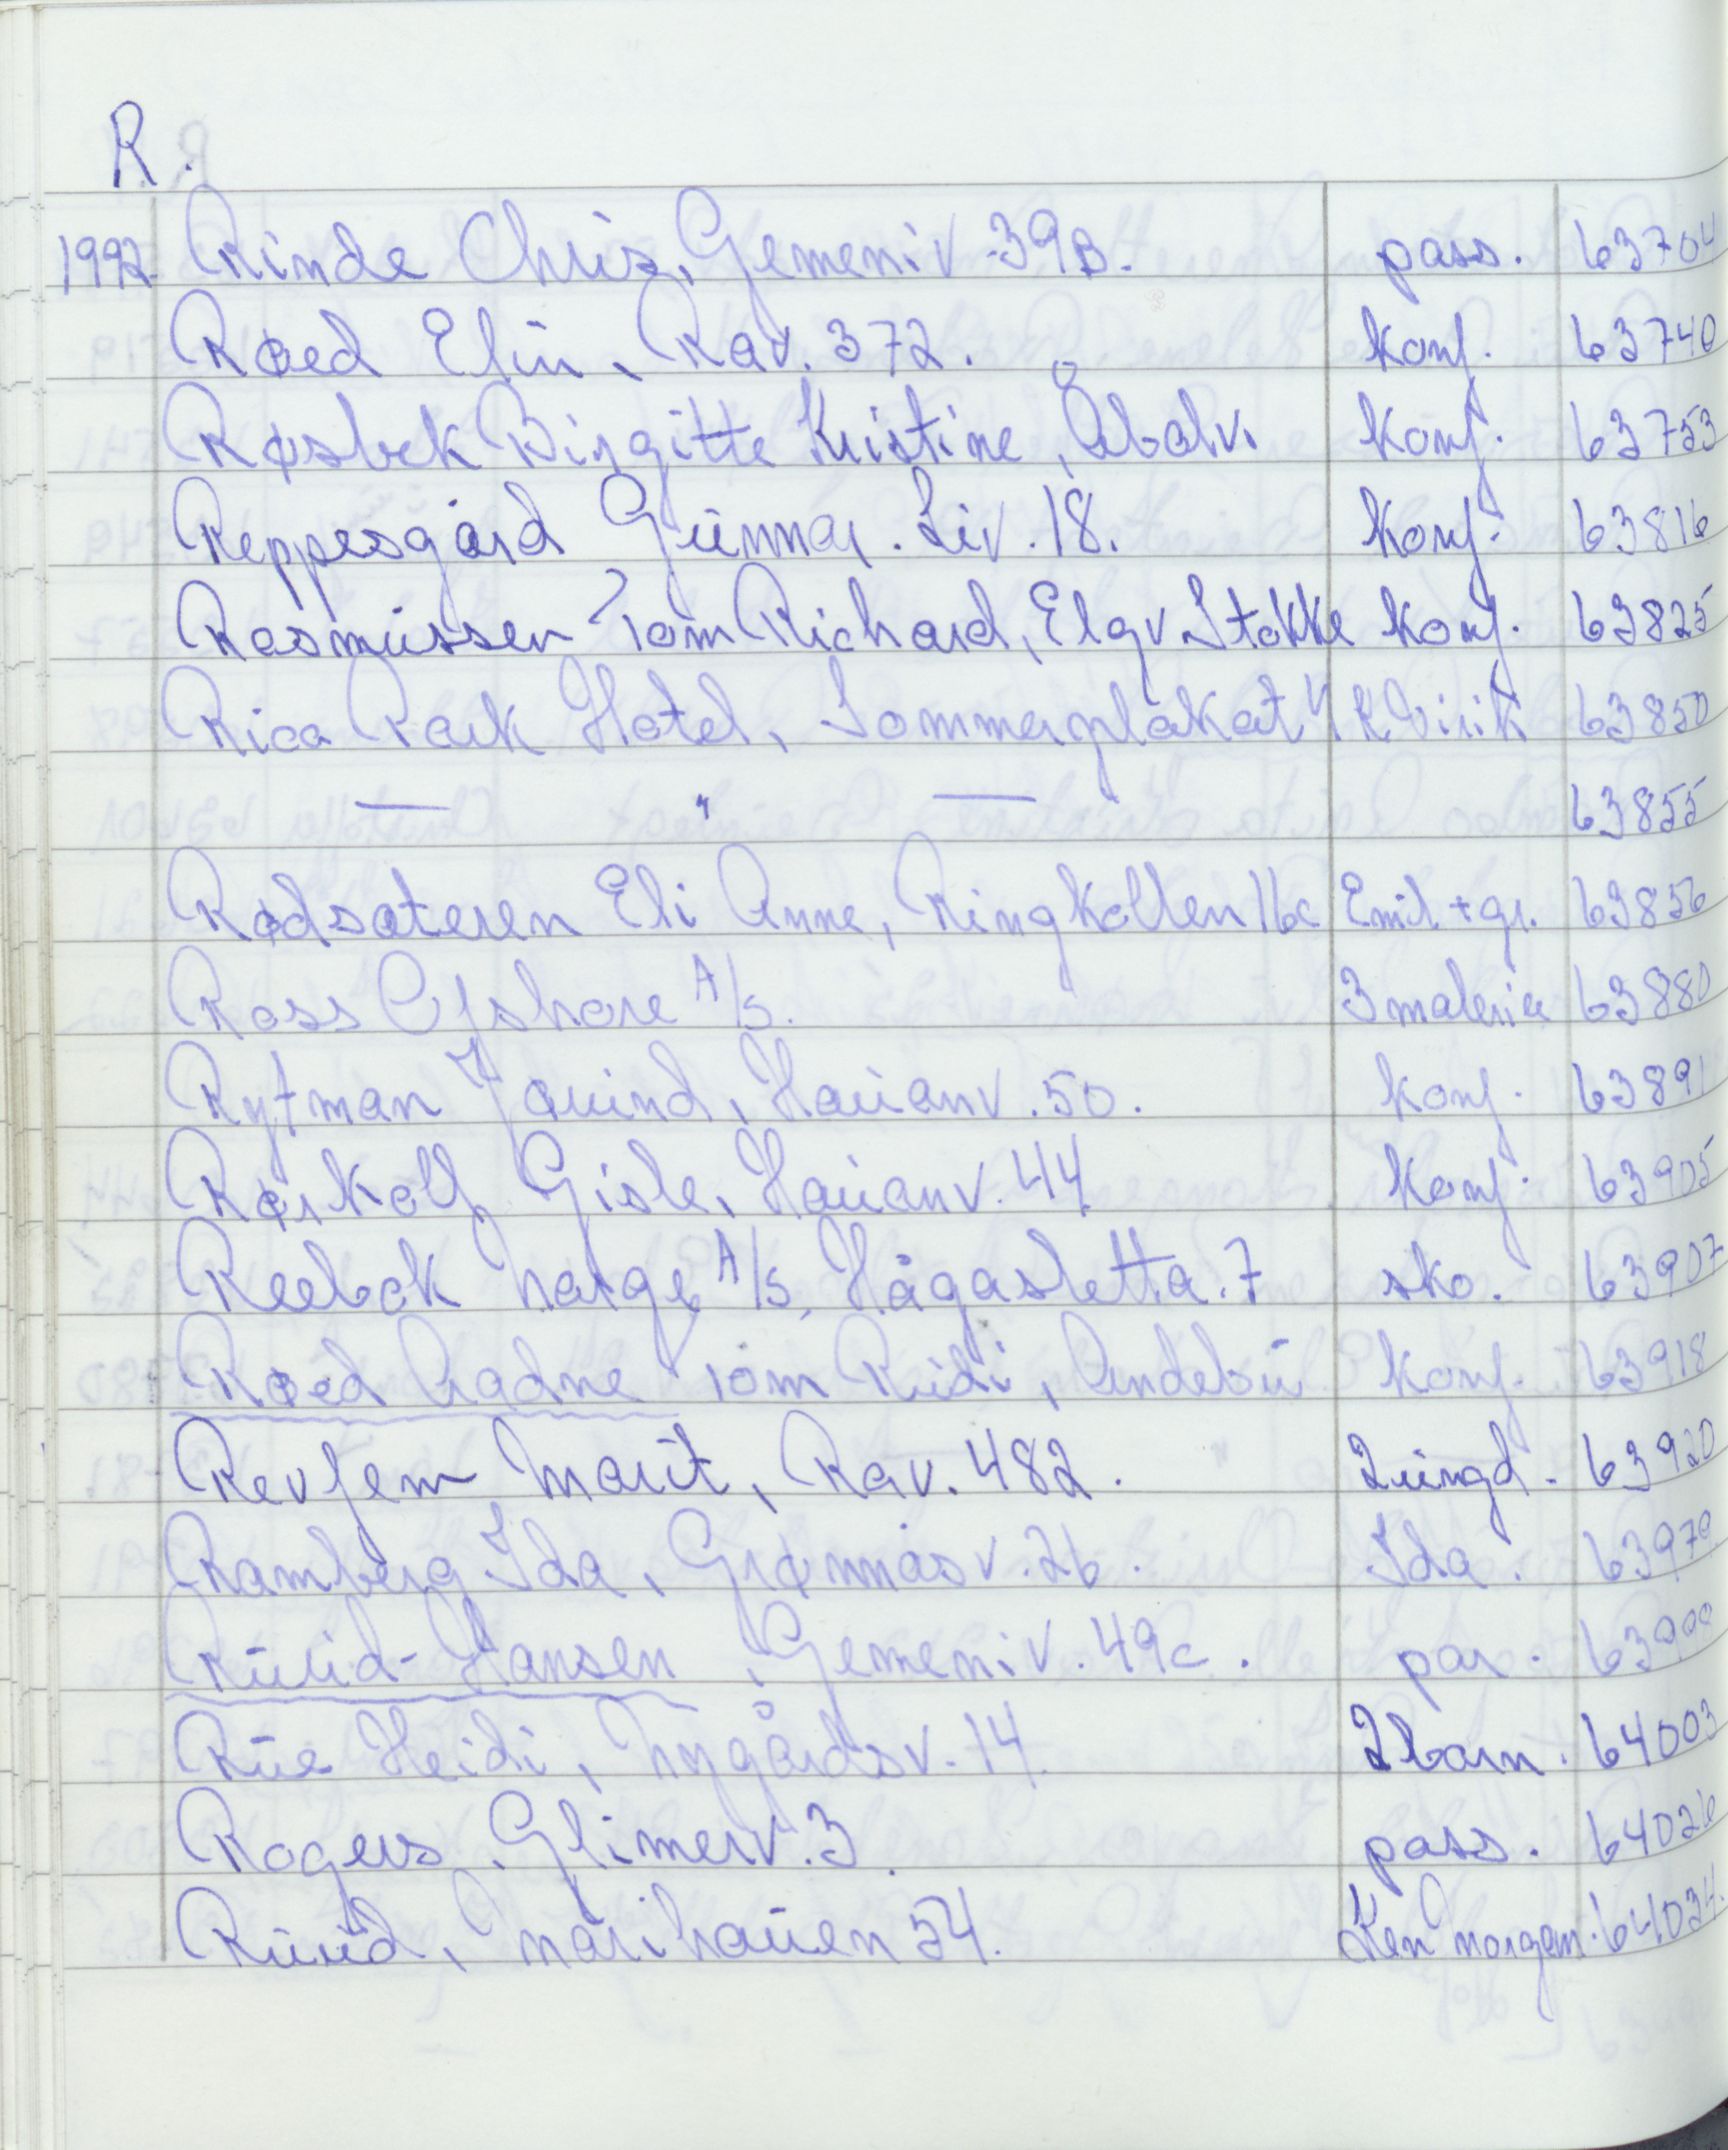 R.
1992 Rinde Chris, Gemeniv. 39B. pass. 63704
Røed Elin, Rav. 372. konf. 63740
Røsbek Birgitte Kristine, Åbolv. konf. 63753
Reppesgård Gunnar. Liv. 18. konf. 63816
Rasmussen Tom Richard, Elgv Stokke konf. 63825
Rica Park Hotel, Sommerplakat 63850
— " — 63855
Rødsøteren Eli Anne, Ringkollen 16c Emil + gr. 63856
Ross Ofshore A/S. 3 malerier 63880
Rytman Jøuind, Hauanv. 50. konf. 63891
Rørkoll Gisle, Hauanv. 44. konf. 63905
Reebok Norge A/S, Hågasletta. 7 sko. 63907
Røed Aadne Tom Rudi, Andebu konf. 63918
Revfem Marit, Rav. 482. 2 ungd. 63920
Ramberg Ida, Grønnåsv. 26. Ida. 63979
Ruud-Hansen, Gemeniv. 49c. par.
Rue Heidi, Nygårdsv. 14. 2 barn. 64003
Rogers, Glimerv. 3. pass. 64026
Ruud, Marihauen 54. Ken morgam. 64034.